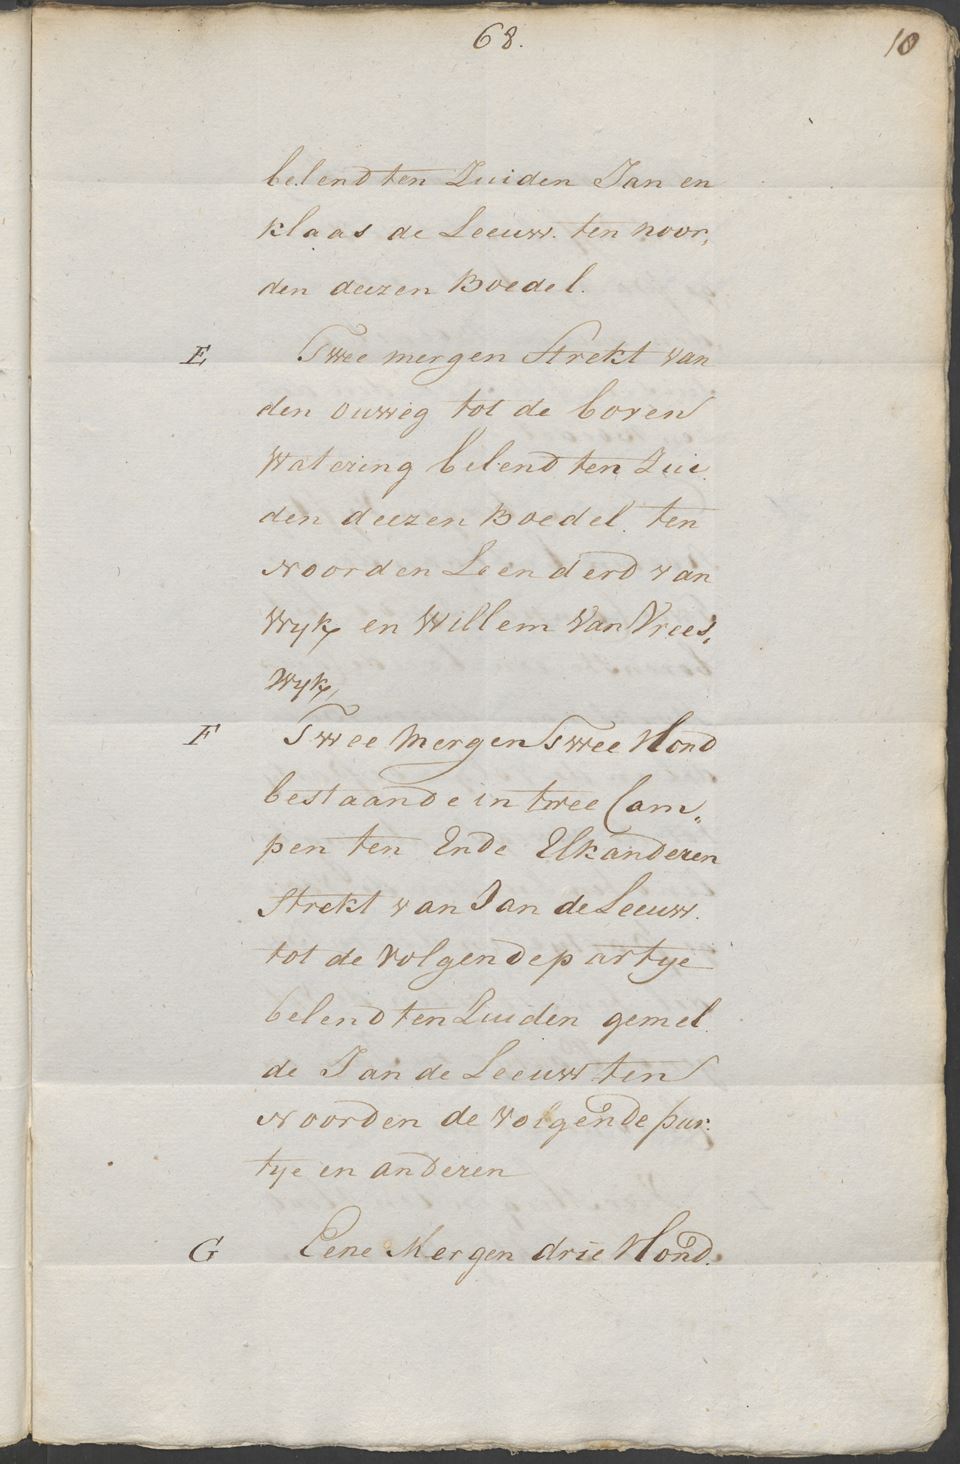 68.
10
belend ten Zuiden Jan en
klaas de Leeuw. ten noor,
den deezen Boedel.
E Twee mergen Strekt van
den ouweg tot de boven
Watering belend ten Zui
den deezen Boedel ten
Noorden Leenderd van
Wyk, en Willem Van Vrees,
Wyk,
F Twee Mergen Twee Hond
bestaande in twee Cam„
pen ten Ende Elkanderen
Strekt van Jan de Leeuw.
tot de Volgende partye
belend ten Zuiden gemel
de Jan de Leeuw ten
Noorden de Volgende par:
tye en anderen
G Eene Mergen drie Hond.